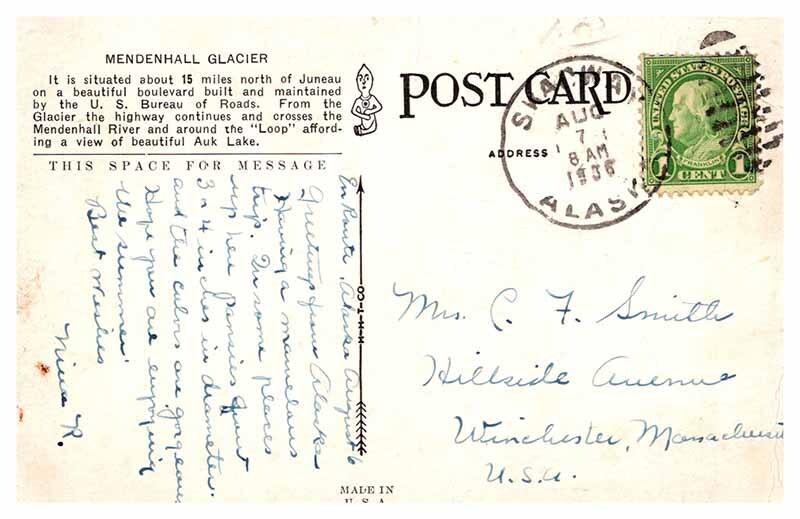 MENDENHALL GLACIER
It is situated about 15 miles north of Juneau
on a beautiful boulevard built and maintained
by the U. S. Bureau of Roads. From the
Glacier the highway continues and crosses the
Mendenhall River and around the "Loop" afford-
ing a view of beautiful Auk Lake.
THIS SPACE FOR MESSAGE
En Route, Alaska August 6
Greetings from Alaska
Having a marvelous
trip. In some places
up here Pansies grow
3 x 4 inches in diameter.
and the colors are gorgeous
Hope you are enjoying
the summer.
Best Wishes
Nina R.
H-H-T-CO
MADE IN
U.S.A.
POST CARD
ADDRESS
AUG
7
8 AM
1936
ALASK
UNITED STATES POSTAGE
FRANKLIN
1 CENT 1
Mrs. C. F. Smith
Hillside Avenue
Winchester, Massachusett
U.S.A.